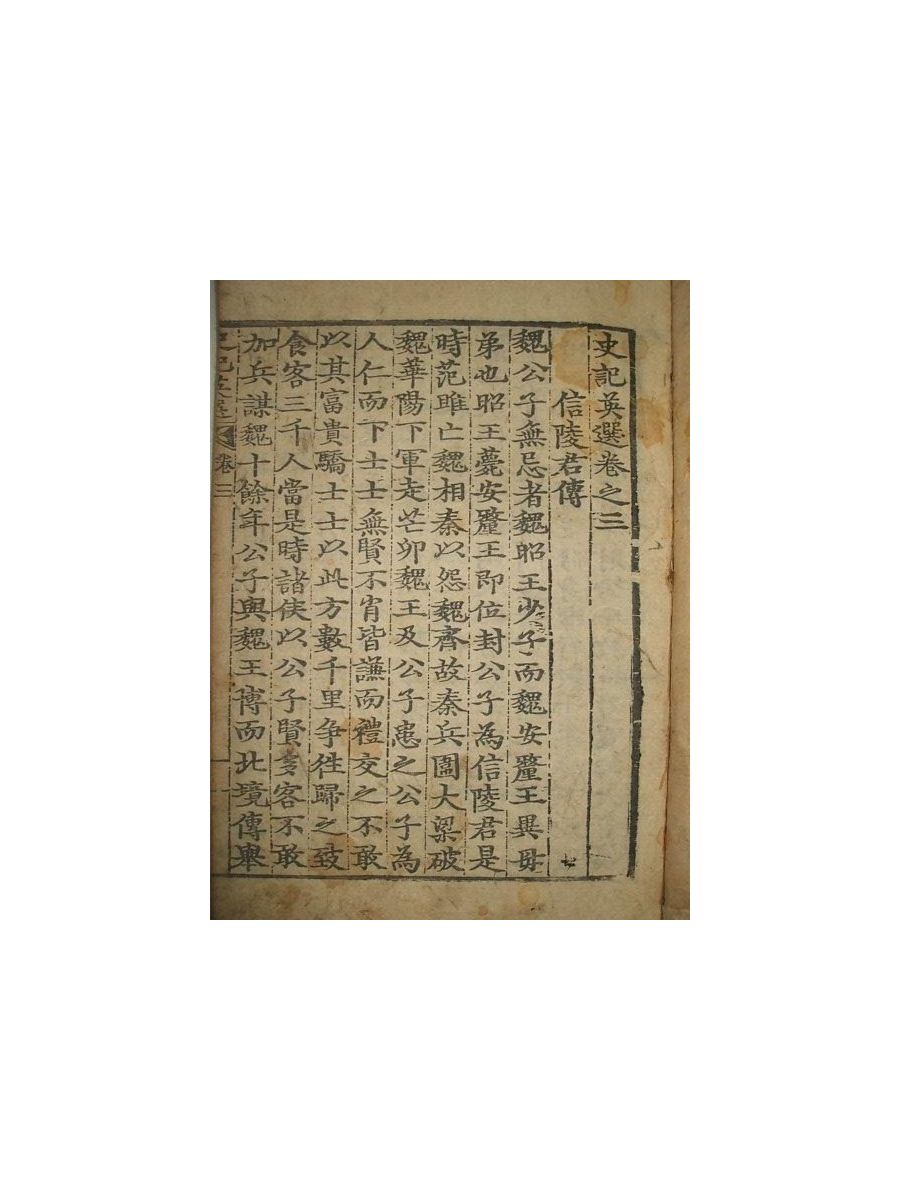 史記英選卷之三
信陵君傳
魏公子無忌者魏昭王少子而魏安釐王異毋
弟也昭王薨安釐王即位封公子為信陵君是
時范雎亡魏相秦以怨魏齊故秦兵圍大梁破
魏華陽下軍走芒卯魏王及公子患之公子為
人仁而下士士無賢不肖皆謙而禮交之不敢
以其富貴驕士士以此方數千里爭徃歸之致
食客三千人當是時諸侯以公子賢多客不敢
加兵謀魏十餘年公子與魏王博而北境傳舉
史記英選 卷三